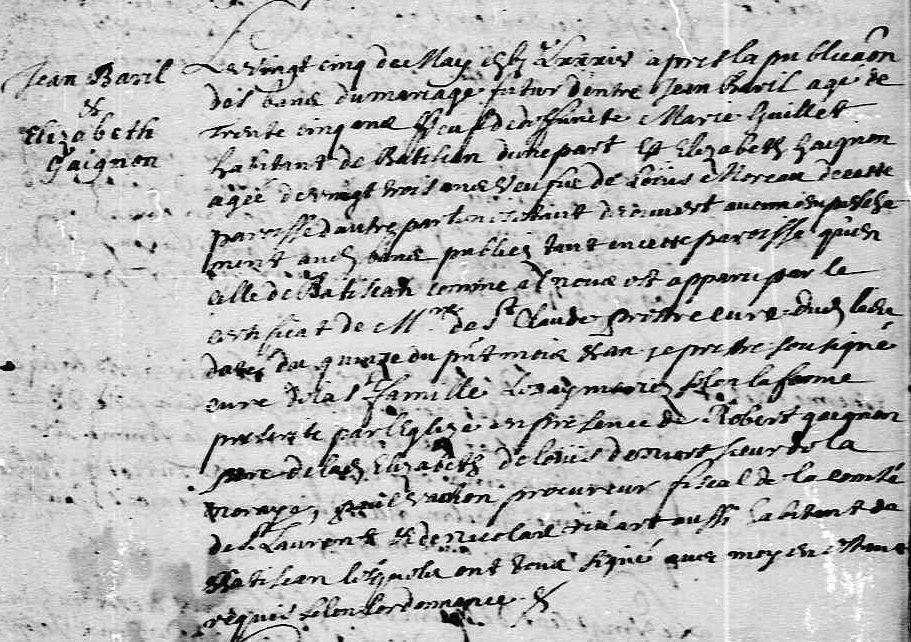 Jean Baril
&
Elizabeth
Gaignon
Le vingt cinq de May apres la publicaõn
des bans du mariage futur dentre Jean Baril agé de
trente cinq ans veuf de deffuncte Marie Guillet
habitant de Batiscan dune part Et Elizabeth Gaignon
agée de vingt trois ans veufue de Loüis Moreau de cette
paroisse dautre part ne sestant decouvert aucun empesche
ment aux bans publiez tant en cette paroisse qu'en
celle de Batiscan comme il nous est apparu par le
certificat de Mre de St Claude prestre curé dud lieu
datté du quinze du pnt mois & an je prestre soussigné
curé de la Ste famille les ay mariez selon la forme
prescrite par l'Eglize en presence de Robert gaignon
pere de lad Elizabeth de loüis sieur de la
noraye, paul vachon procureur fiscal de la comté
de St Laurent & de nicolas rivart aussi habitant de
Batiscan lesquels ont tous signé avec moy de ce
requis selon lordonnance &